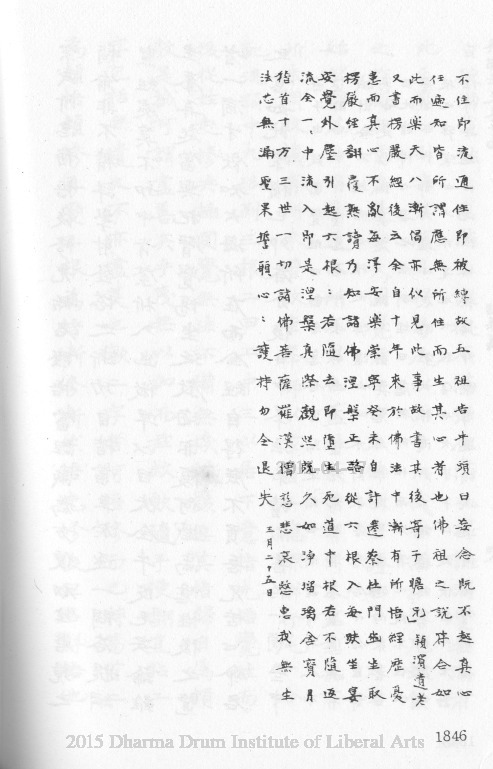 不住即流通住即被縛故五祖告牛頭曰妄念既不起真心
任遍知皆所謂應無所住而生其心者也佛祖之說符合如
此而樂天八漸偈亦似見此事故書其後寄子瞻兄」潁濱遺老
又書楞嚴經後云余自十年來於佛法中漸有所悟經歷憂
患而真心不亂每得安樂崇寧癸未自許遷蔡杜門幽坐取
楞嚴經翻覆熟讀乃知諸佛涅槃正路從六根入每趺坐宴
安覺外塵引起六根：若隨去即墮生死道中根若不隨返
流全一中流入即是涅槃真際觀照既久如淨琉璃含寶月
稽首十方三世一切諸佛菩薩羅漢僧慈悲哀愍惠我無生
法忍無漏果誓願心：護持勿令退失 三月二十五日
1846
2015 Dharma Drum Institute of Liberal Arts